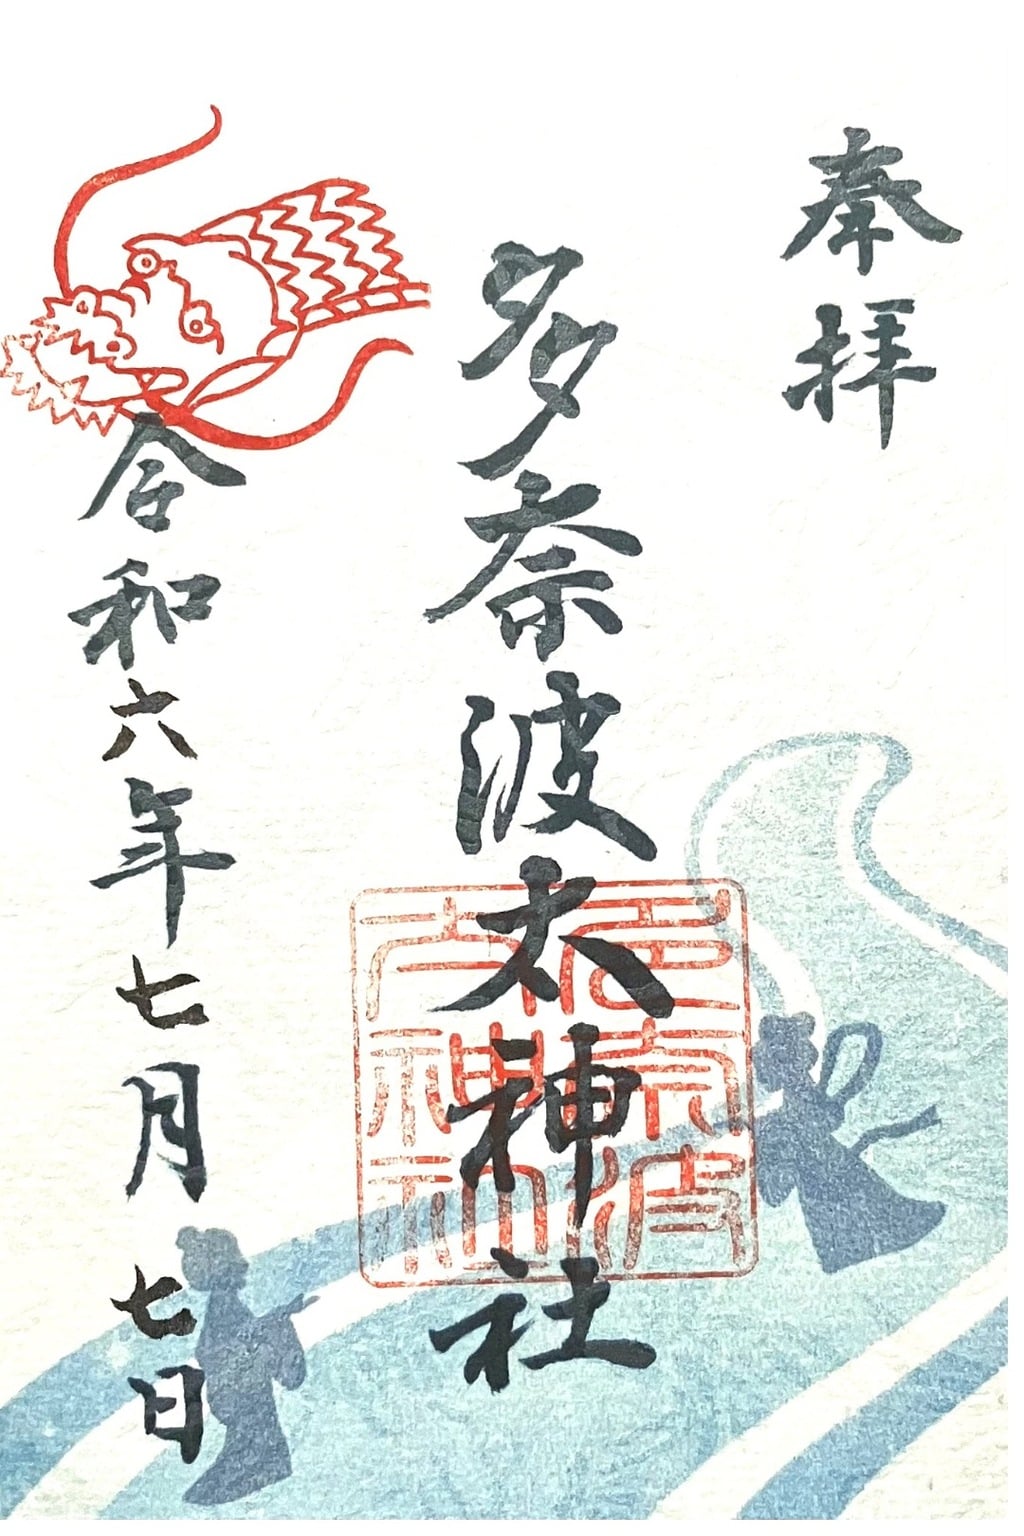 奉拝
多奈波太神社
多奈波
太神社
令和六年七月七日